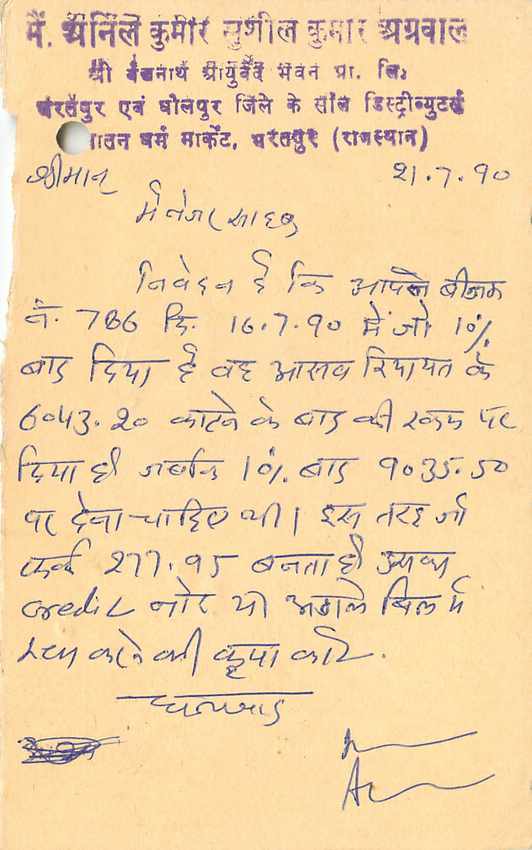 मैं. अनिल कुमार सुशील कुमार अग्रवाल
श्री बैद्यनाथ आयुर्वेद भवन प्रा. लि.
भरतपुर एवं धोलपुर जिले के सोल डिस्ट्रीब्युटर्स
मार्केट, भरतपुर (राजस्थान)
श्रीमान् 21.7.90
मैनेजर साहब
निवेदन है कि आपने बीजक
नं. 786 दि. 16.7.90 में जो 10%
बाद दिया है वह आसव रियायत के
6043.20 काटने के बाद की रकम पर
दिया है जबकि 10% बाद 9035.50
पर देना चाहिए थी। इस तरह जो
फर्क 277.95 बनता है उसका
credit नोट या अगले बिल में
करने की कृपा करें.
धन्यवाद